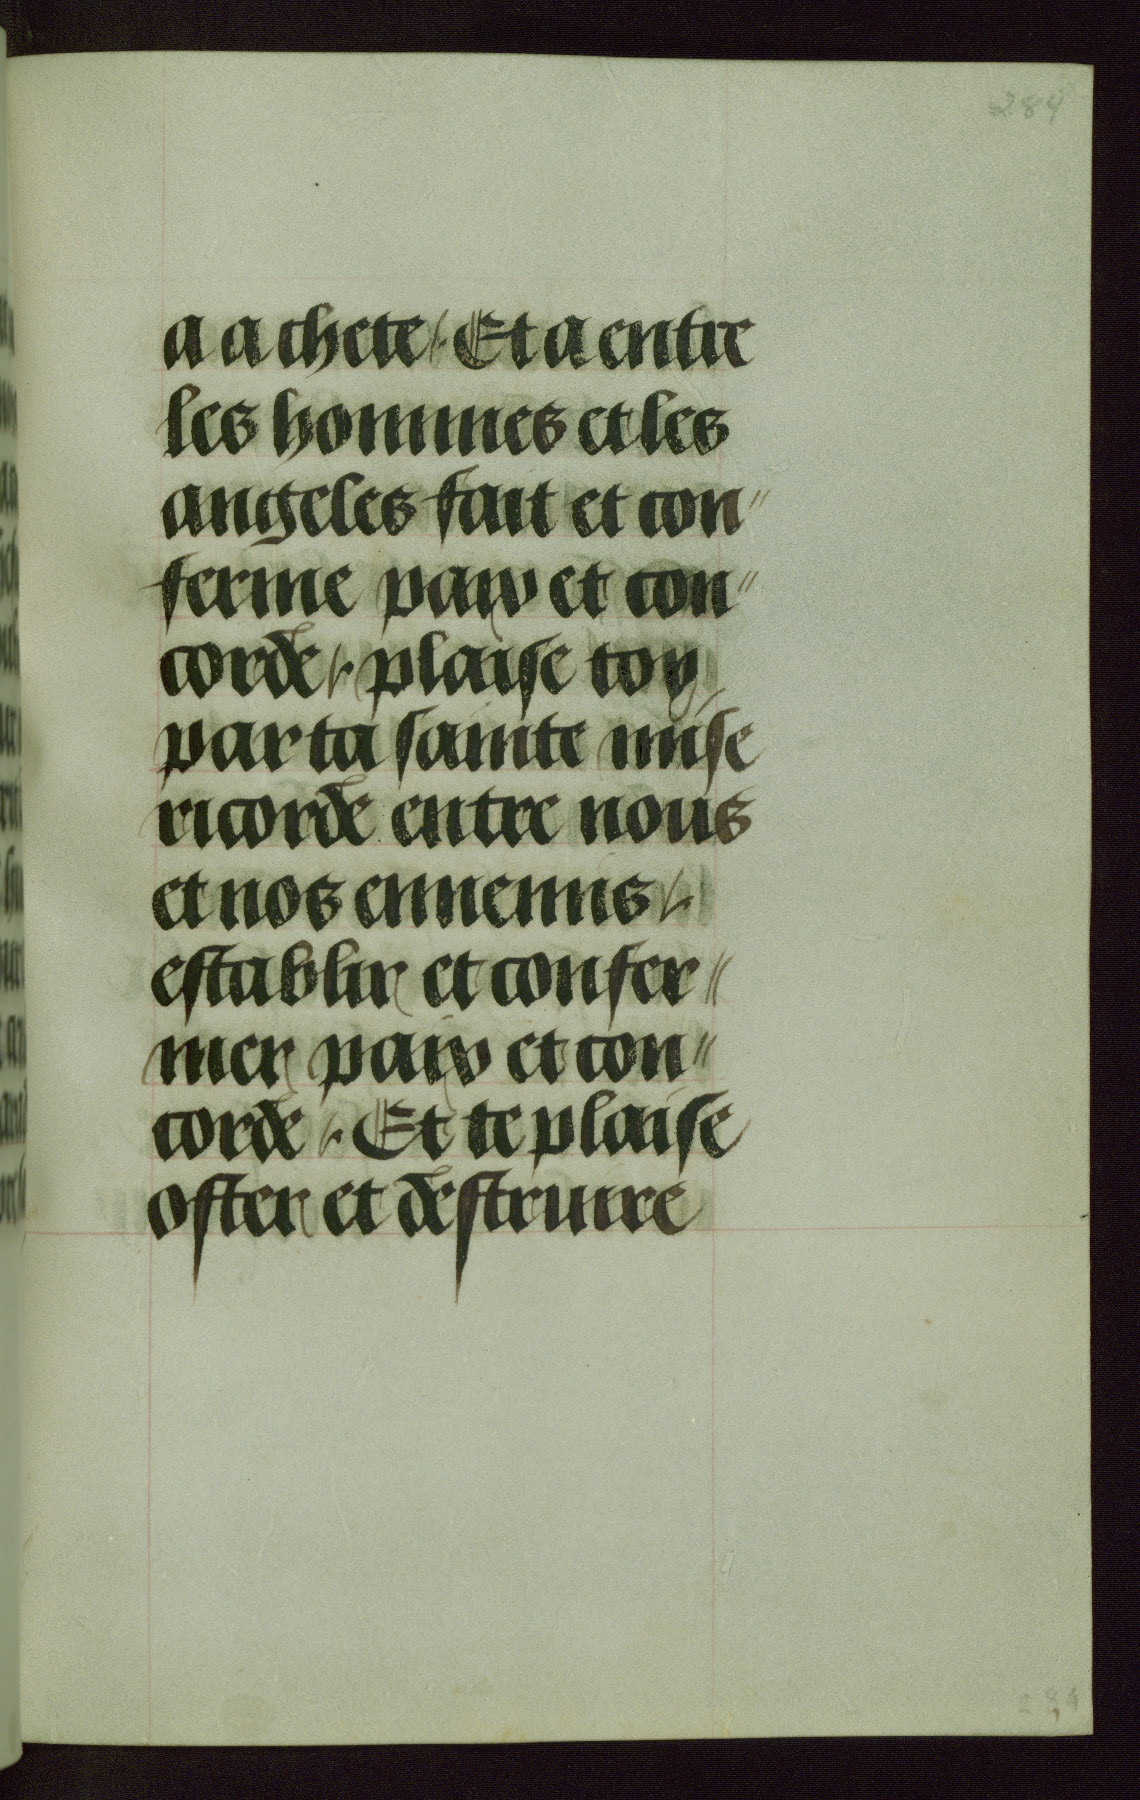 284
a achete / Et a entre
les hommes et les
angeles fait et con"
ferme paix et con"
corde / plaise toy
par ta sainte mise
ricorde entre nous
et nos ennemis /
establir et confer"
mer paix et con"
corde / Et te plaise
oster et destruire
284